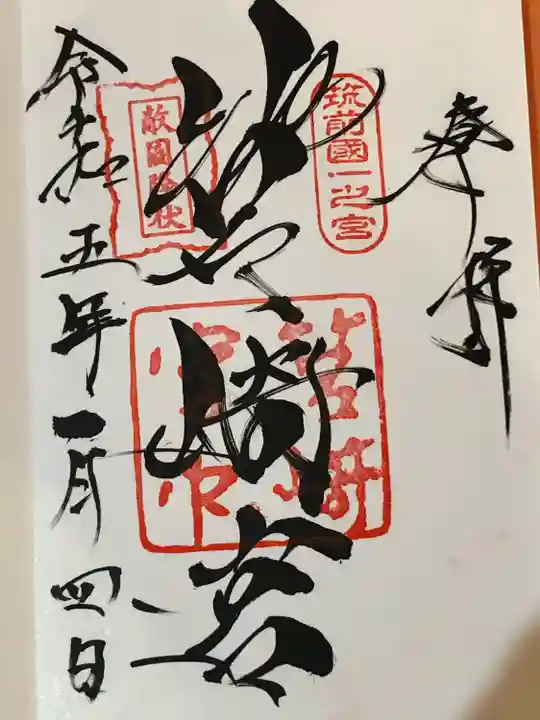 奉拝
筑前國一之宮
筥崎宮
敵国降伏
筥崎宮印
令和五年一月四日